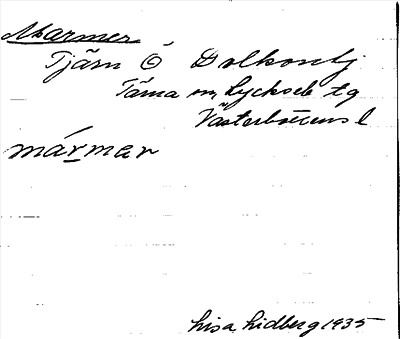 Marmer
Tjärn Ö Dalkontj
Tärna sn, Lycksele tg
Västerbottens l
mármer
Lisa Lidberg 1935